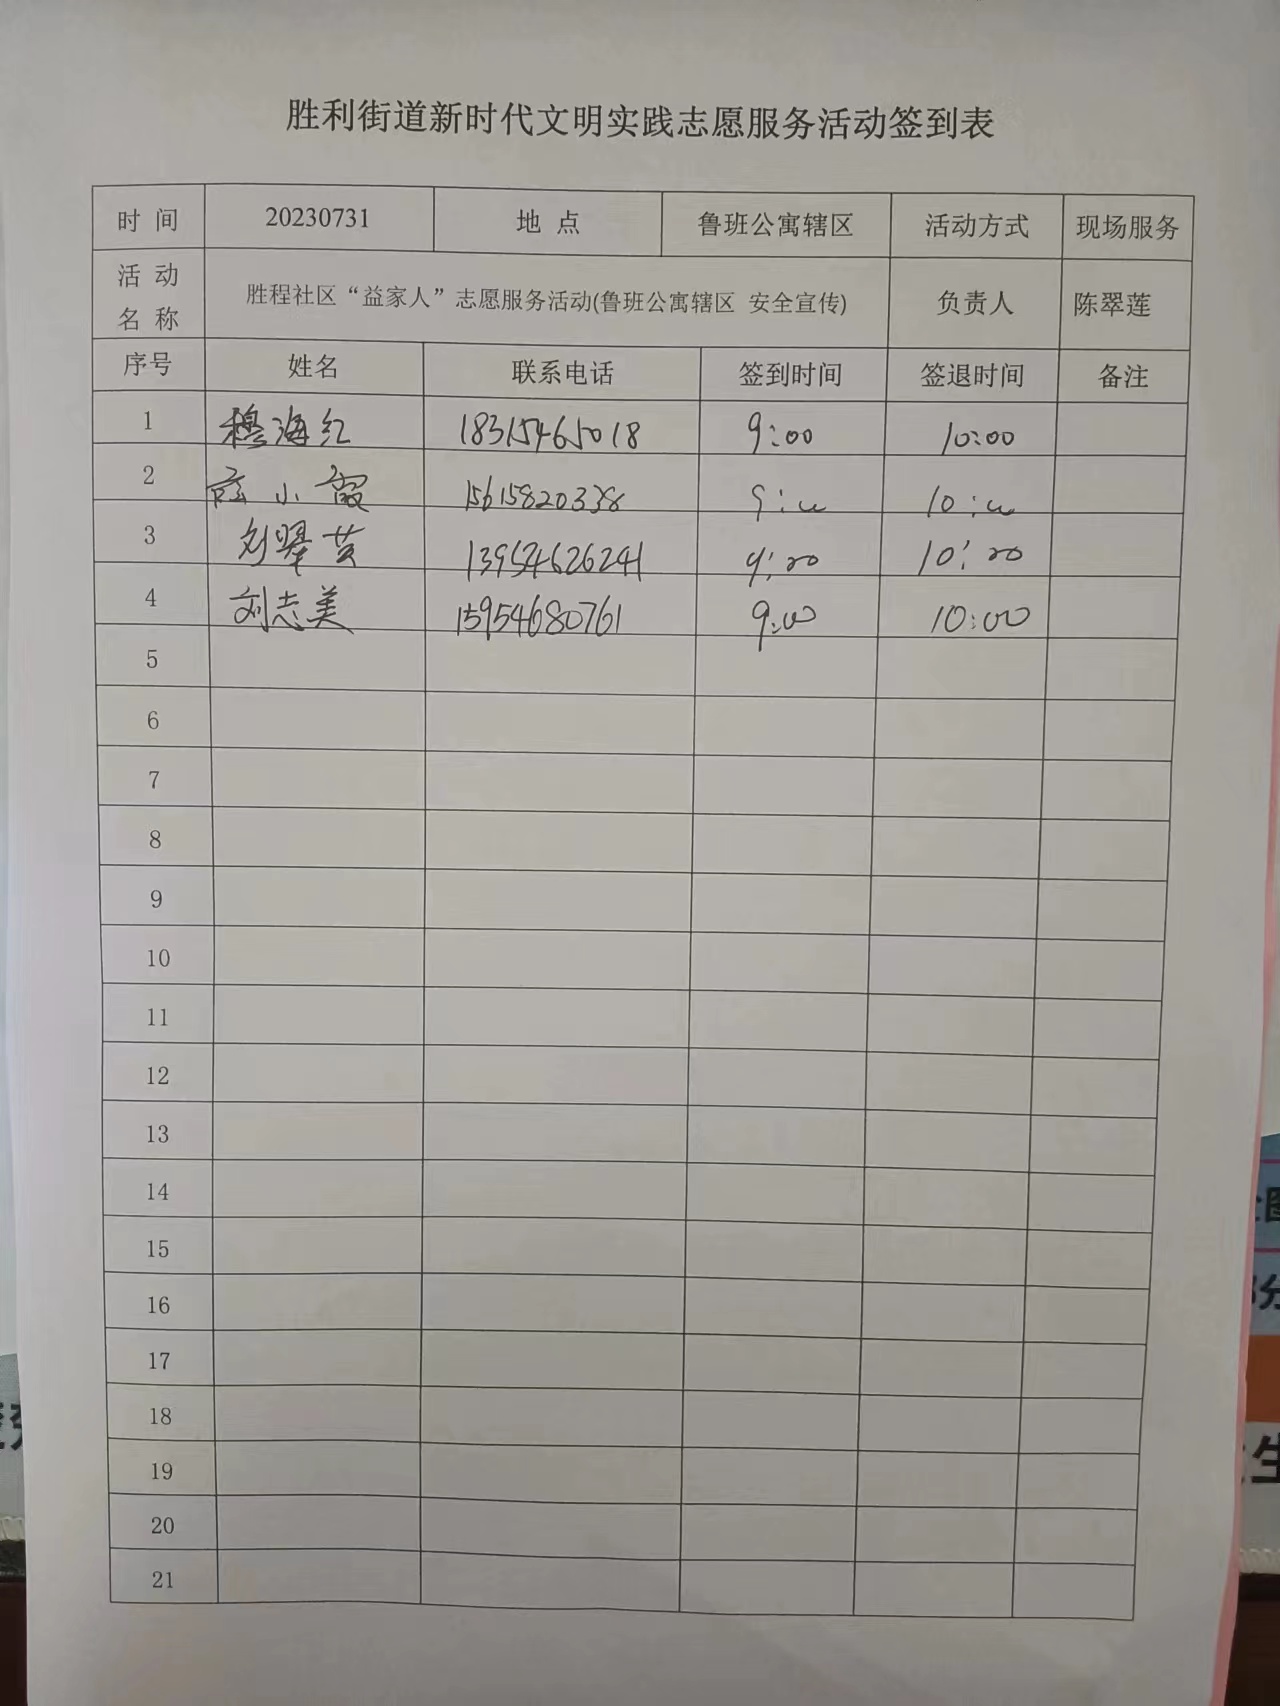 胜利街道新时代文明实践志愿服务活动签到表
时 间 20230731 地 点 鲁班公寓辖区 活动方式 现场服务
活 动 名 称 胜程社区“益家人”志愿服务活动(鲁班公寓辖区 安全宣传) 负责人 陈翠莲
序号 姓名 联系电话 签到时间 签退时间 备注
1 穆海红 18315465018 9:00 10:00
2 小霞 15615820338 9:00 10:00
3 刘翠芸 13954626241 9:00 10:00
4 刘志美 15954680761 9:00 10:00
5
6
7
8
9
10
11
12
13
14
15
16
17
18
19
20
21